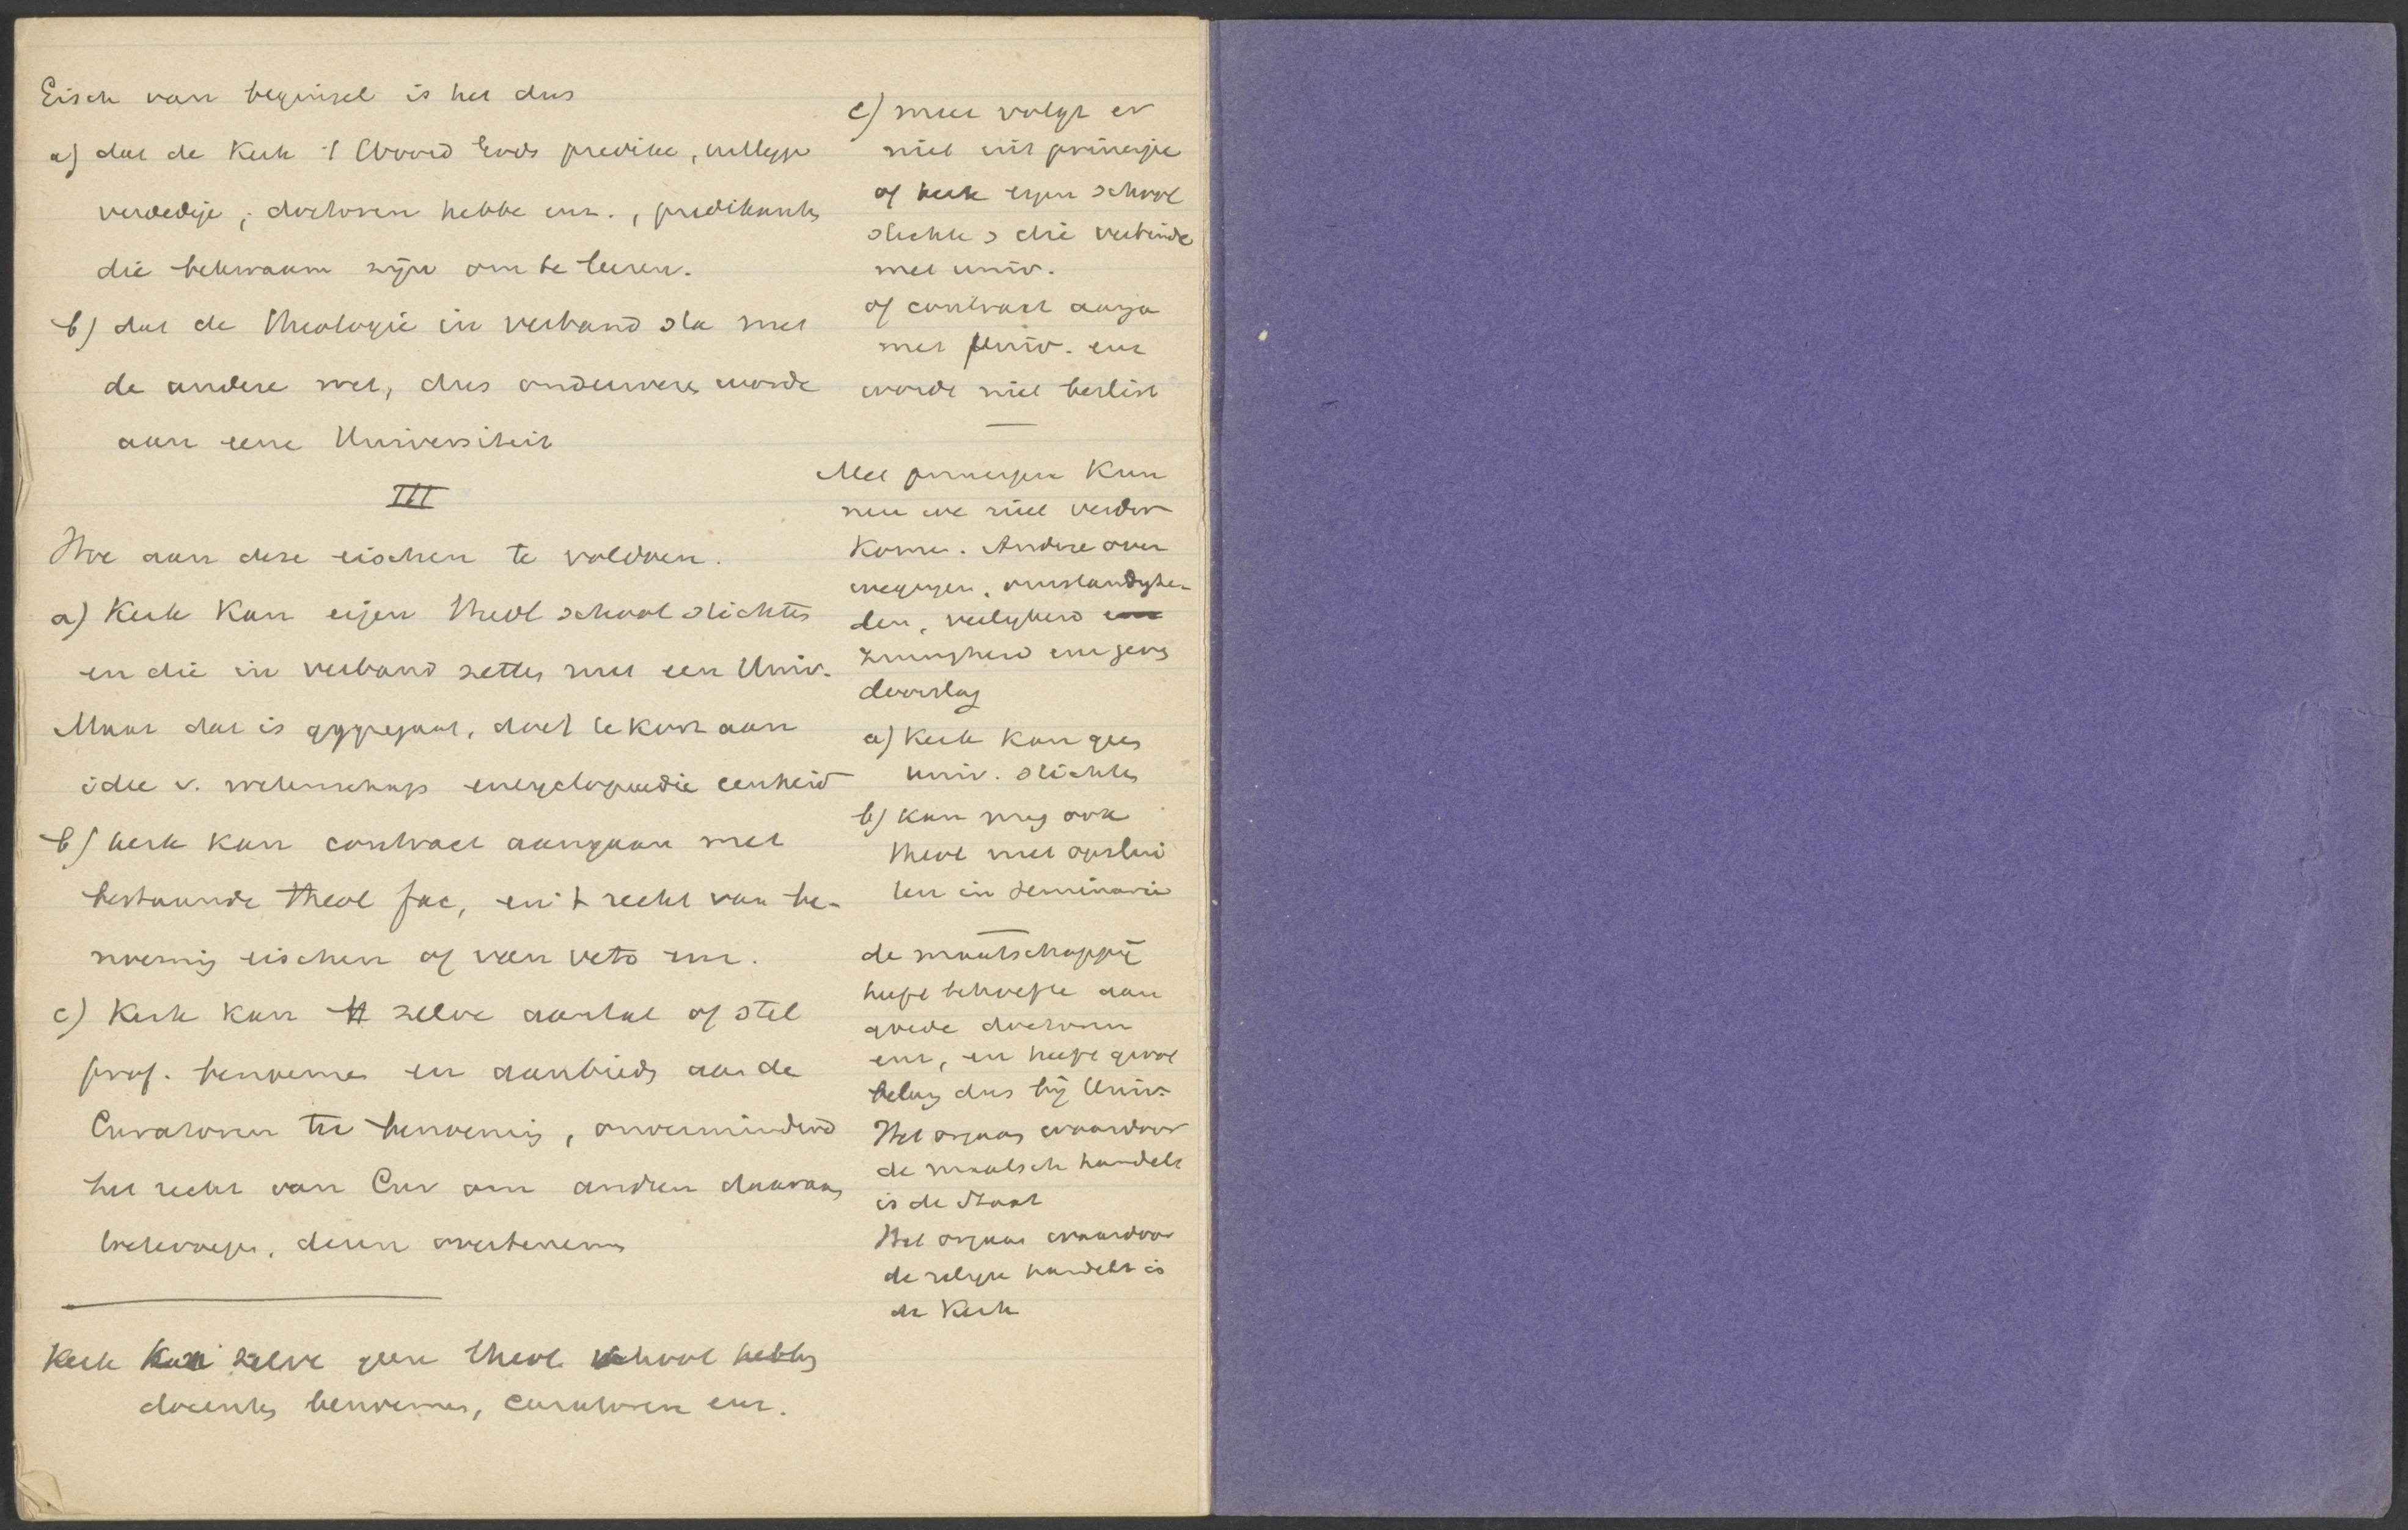 Eisch van beginsel is het dus
a) dat de Kerk 't Woord Gods predike, uitlegge
verdedige, doctoren hebbe enz., predikants
die bekwaam zijn om te leeren.
b) dat de theologie in verband sta met
de andere wet, dus onderwezen worde
aan eene Universiteit
III
Hoe aan deze eischen te voldoen.
a) Kerk kan eigen theol school stichten
en die in verband zetten met een Univ.
Maar dat is aggregaat, doet te kort aan
idee v. wetenschaps encyclopaedie eenheid
b) kerk kan contract aangaan met
bestaande theol fac, en 't recht van be-
noeming eischen of van veto enz.
c) Kerk kan zelve aantal of stel
prof. benoemen en aanbieden aan de
Curatoren ter benoeming, onverminderd
het recht van Cur om andren daaraan
toetevoegen, dezen overtenemen
Kerk kan zelve geen theol school hebben
docenten benoemen, curatoren enz.
c) meer volgt er
niet uit principe
of kerk eigen school
stichte & die verbinde
met univ.
of contract aanga
met Univ. enz
worde niet beslist
Met principes kun
nen we niet verder
komen. Andere over
wegingen, omstandighe-
den, veiligheid enz
zuinigheid enz geven
doorslag
a) Kerk kan geen
univ. stichten
b) kan mag ook
theol niet opslui
ten in seminarie
de maatschappij
heeft behoefte aan
goede doctoren
enz, en heeft groot
belang dus bij Univ.
Het orgaan waardoor
de maatsch handelt
is de Staat
Het orgaan waardoor
de religie handelt is
de Kerk